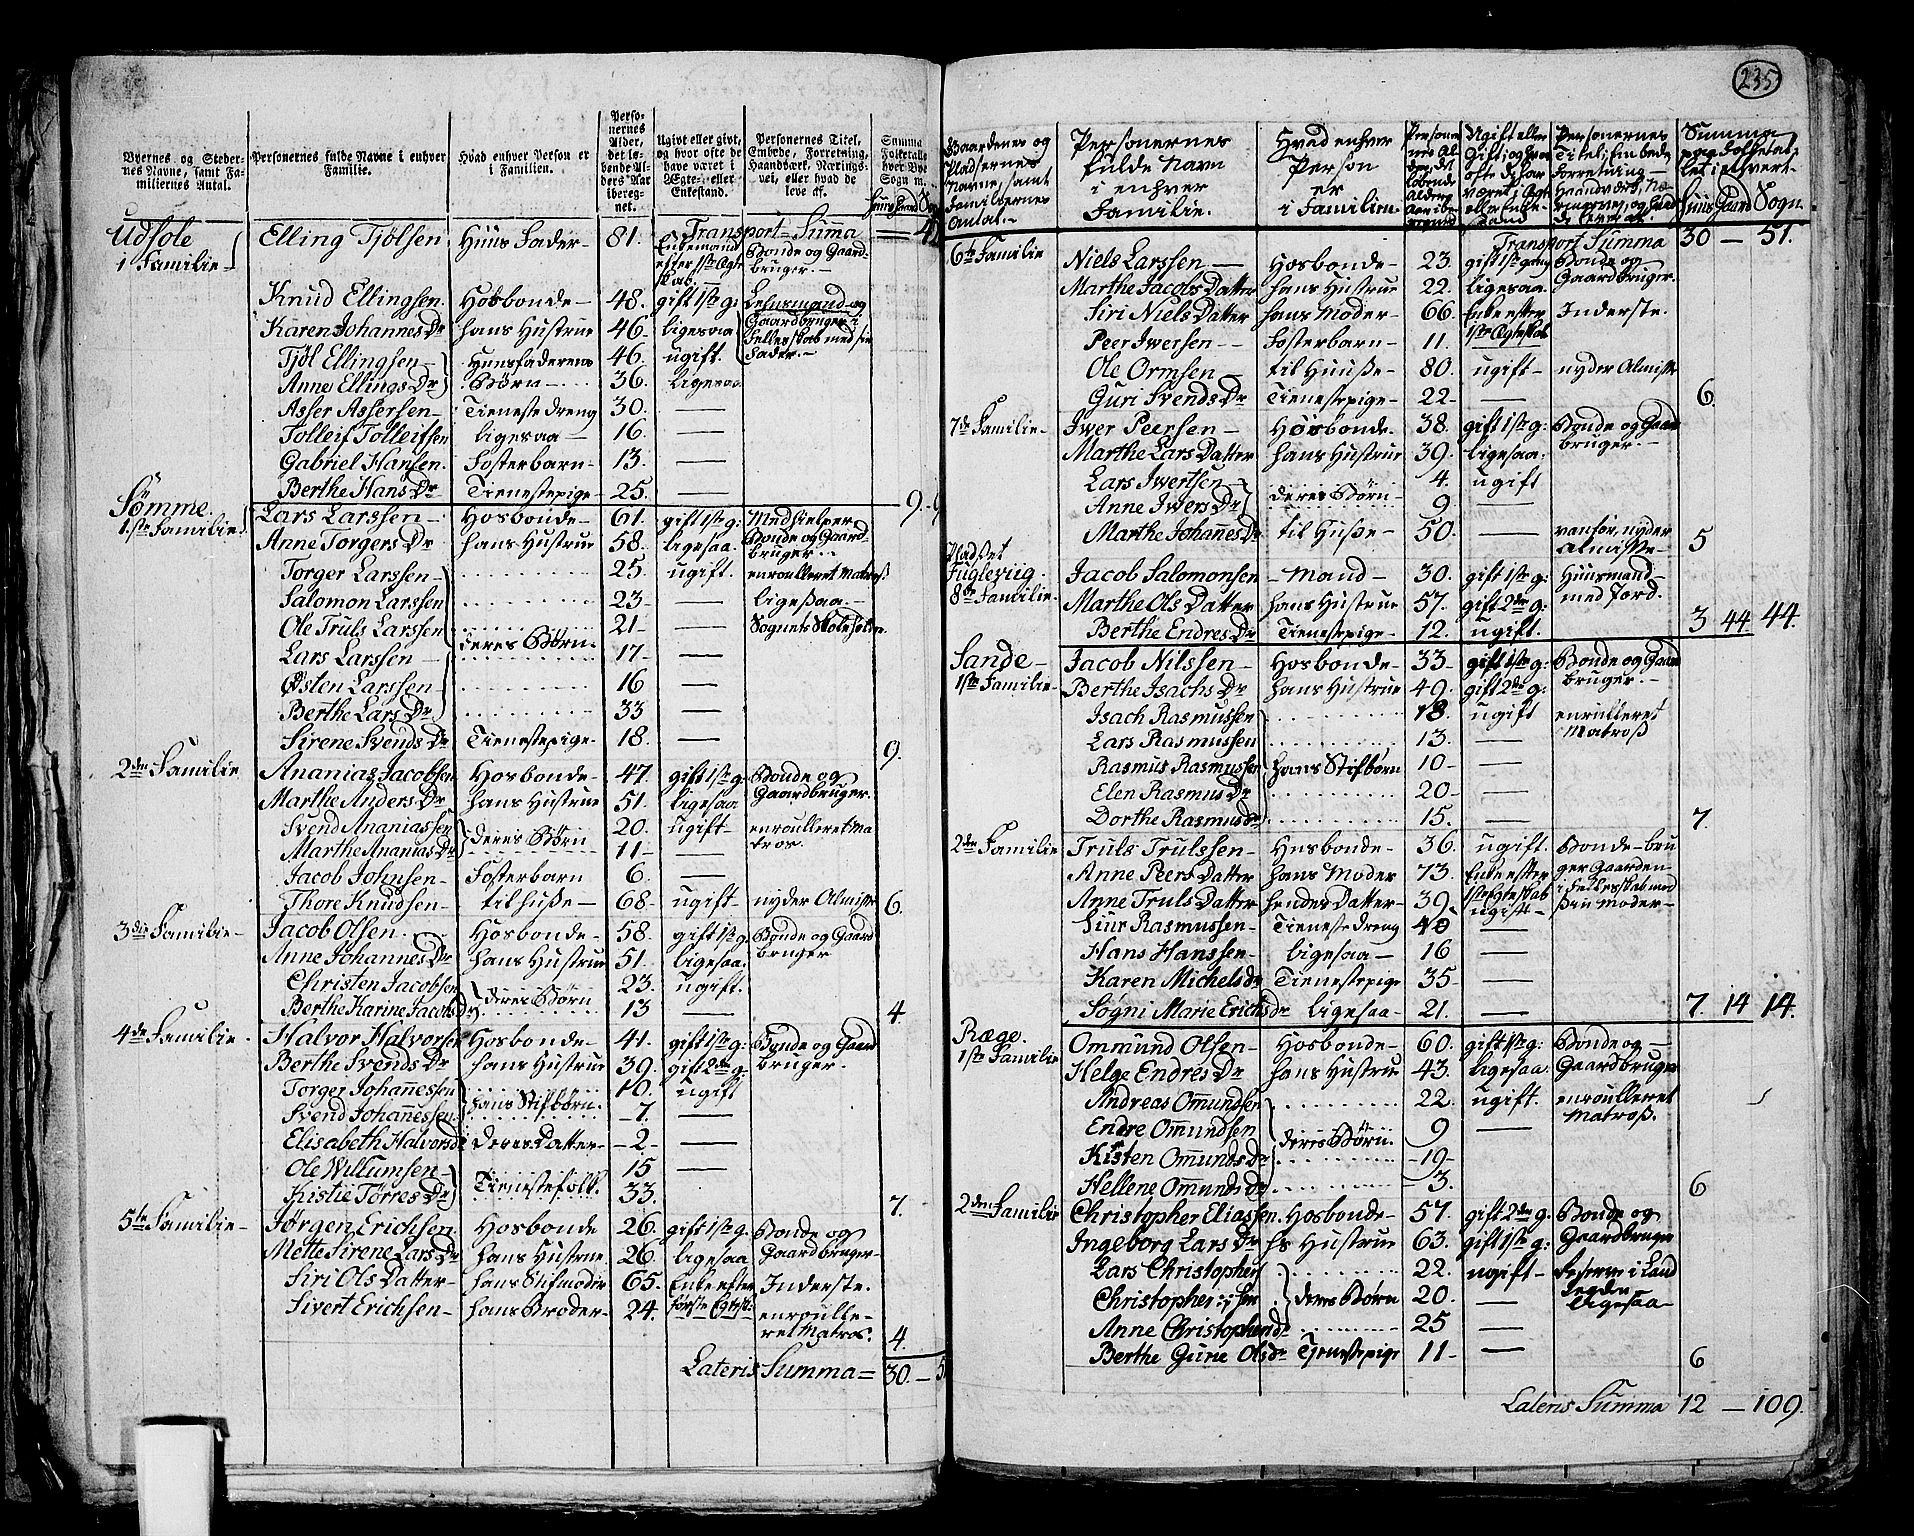 Byernes og Steder-
nes Navne, samt Fa-
miliernes Antal.
Personernes fulde Navne i enhver
Familie.
Hvad enhver Person er
i Familien.
Perso-
nernes
Alder,
det lø-
bende Al-
ders Aar
ibereg-
net.
Ugivt eller givt,
og hvor ofte de
have været i
Ægte- eller
Enkestand.
Personernes Titel,
Embede, Forretning,
Haandværk, Nærings-
vei, eller hvad de
leve af.
Summa
Folketallet
hver By
Sogn m.
Transport Summa
Udsole Elling Tjølsen Huus Fader 81. Enkemand Bonde og Gaard-
1 Familie efter 1ste Ægte bruger.
skab.
Knud Ellingsen Hosbonde 48. gift 1ste g: Lehnsmand og
Karen Johannes Dr hans Hustrue 46. ligesaa Gaardbruger i
Tjøl Ellingsen Huusfaderens 46. ugift Fellesskab med sin
Anne Ellings Dr Børn 36. ligesaa Fader.
Asser Assersen Tieneste dreng 30. —
Tolleif Tolleifsen ligesaa 16. —
Gabriel Hansen Fosterbarn 13. —
Berthe Hans Dr Tienestepige 25. — 9.
Sømme.
1ste Familie Lars Larssen Hosbonde 61. gift 1ste g: Medhielper
Anne Torgers Dr hans Hustrue 58. ligesaa. Bonde og Gaard-
bruger.
Torger Larssen 25. ugift. enroulleret Matros
Salomon Larssen 23 — ligesaa
Ole Truls Larssen 21 — Sognets Skoleholder
Lars Larssen deres Børn 17 —
Østen Larssen 16 —
Berthe Lars Dr 33 —
Sirene Svends Dr Tienestepige 18. — 9.
2den Familie Ananias Jacobsen Hosbonde 47. gift 1ste g. Bonde og
Marthe Anders Dr hans Hustrue 51. ligesaa Gaardbruger.
Svend Ananiassen deres Børn 20. ugift enroulleret Ma
Marthe Ananias Dr 11 — tros.
Jacob Johnsen Fosterbarn 6. —
Thore Knudsen til huse 68. ugift nyder Almisse 6.
3die Familie Jacob Olsen Hosbonde 58. gift 1ste g. Bonde og Gaard
Anne Johannes Dr hans Hustrue 51. ligesaa. bruger
Christen Jacobsen deres Børn 23. ugift.
Berthe Karine Jacobs Dr 13 — 4.
4de Familie Halvor Halvorsen Hosbonde 41. gift 1ste g: Bonde og Gaard
Berthe Svends Dr hans Hustrue 39. gift 2den g. bruger.
Torger Johannessen hans Stifbørn. 10. ugift
Svend Johannessen 7. —
Elisabeth Halvorsd deres Datter 2 —
Ole Willumsen Tienestefolk. 15 —
Kistie Tørres Dr 33. 7.
5te Familie Jørgen Erichsen Hosbonde 26. gift 1ste g. Bonde og
Mette Sirene Lars Dr hans Hustrue 26. ligesaa Gaardbruger
Siri Ols Datter hans Stifmoder 65. Enke efter Inderste.
Sivert Erichsen hans Broder 24. første Egtesk: enroulle-
ret Matros. 4.
Lateris Summa = 30. — 5
235
Gaardenes og
Pladsernes
Navne, samt
Familiernes
Antal.
Personernes
fulde Navn
i enhver
Familie.
Hvad enhver
Person
er
i Familien
Persone
rnes Al
der, det
løbende
Alders
Aar ibe
regnet
Ugift eller
Gift, og hvor
ofte de har
været i Ægte
eller Enke-
stand
Personernes
Titel, Embede,
Forretning
Haandværk, Næ
ringsvej, og hvad
de lever af.
Summa
paa Folketal-
let i ethvert
Huus Gaard Sogn.
Transport Summa 30 — 51.
6te Familie Niels Larssen Hosbonde 23. gift 1ste gang Bonde og
Marthe Jacobs Datter hans Hustrue 22. ligesaa. Gaardbruger.
Siri Niels Datter hans Moder 66. Enke efter Inderste.
Peer Iwersen Fosterbarn 11. 1ste Ægteskab
Ole Ormsen til Huuse 80. ugift nyder Almisse
Guri Svends Dr Tienestepige 22 — 6.
7de Familie Iwer Peersen Hosbonde 38. gift 1ste g: Bonde og Gaard
Marthe Lars Datter hans Hustrue 39. ligesaa: bruger.
Lars Iwertsen deres Børn 4. ugift
Anne Iwers Dr 9 —
Marthe Johannes Dr til Huse 50. — vanfør, nyder
Almisse 5
Pladset
Fuglevig. Jacob Salomonsen Mand 30. gift 1ste g: Huusmand
8de Familie Marthe Ols Datter hans Hustrue 57. gift 2den g: med Jord.
Berthe Endres Dr Tienestepige 12. ugift. 3 44 44.
Sande Jacob Nilssen Hosbonde 33 gift 1ste g: Bonde og Gaard
1ste Familie Berthe Isachs Dr hans Hustrue 49. gift 2den g: bruger.
Isach Rasmussen 18. ugift enrulleret
Lars Rasmussen 13. — Matros
Rasmus Rasmussen hans Stifbørn 10 —
Elen Rasmus Dr 20 —
Dorthe Rasmus Dr 15. — 7.
2den Familie Truls Trulssen Husbonde 36. ugift. Bonde bru
Anne Peers Datter hans Moder 73. Enke efter ger Gaarden
Anne Truls Datter hendes Datter 39. 1ste Egteskab i Fellesskab med
ugift sin Moder
Siur Rasmussen Tieneste dreng 40 —
Hans Hanssen ligesaa 16 —
Karen Michels Dr Tienestepige 35 —
Søgni Marie Erichs Dr ligesaa 21. — 7. 14 14.
Ræge.
1ste Familie Ommund Olsen Hosbonde 60. gift 1ste g: Bonde og
Helge Endres Dr hans Hustrue 43. ligesaa. Gaardbruger
Andreas Omundsen 22. ugift. enroulleret
Endre Omundsen deres Børn. 9 — Matros.
Kisten Omunds Dr 19
Hellene Omunds Dr 3. 6
2den Familie Christopher Eliassen Hosbonde 57. gift 2den g. Bonde og
Ingeborg Lars Dr hs Hustrue 63. gift 1ste g: Gaardbruger
Lars Christophers 22. ugift Reserve i Land
Christopher :/: sen deres Børn 20. — ligesaa
Anne Christophersdr 25 —
Berthe Gurie Olsdr Tjenestepige 11 — 6
Lateris Summa 12 — 109.